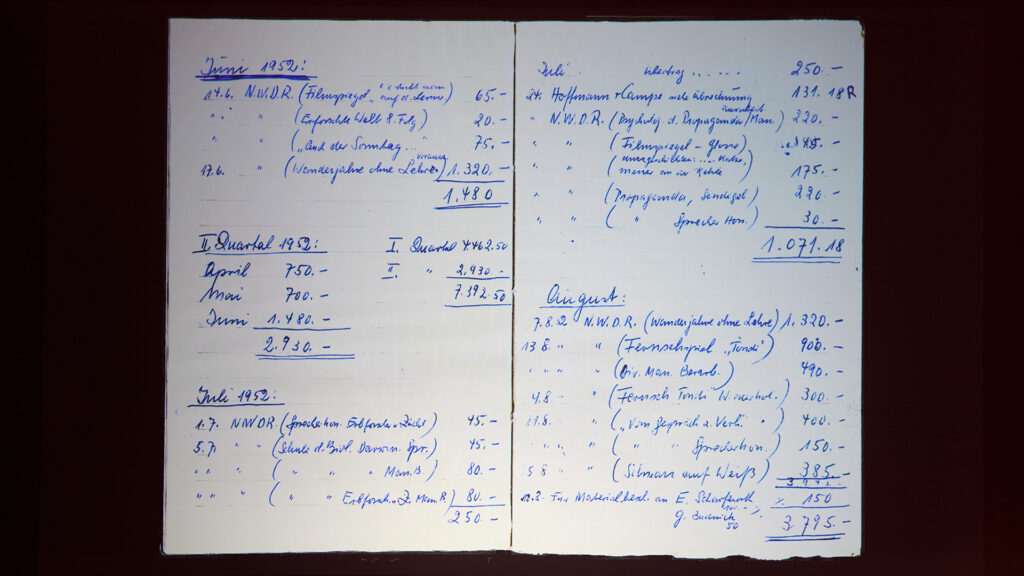 Juni 1952:
14.6. N.W.D.R. (Filmspiegel „ auf d. Leine) 65.-
" " " (Erforschte Welt 8. Folg) 20.-
" " („Und der Sonntag... 75.-
17.6. " (Wanderjahre ohne Lehre) 1.320.-
1.480
II. Quartal 1952:
April 750.-
Mai 700.-
Juni 1.480.-
2.930.-
I. Quartal 4462.50
II. " 2.930.-
7.392 50
Juli 1952:
1.7. NWDR (Sprecherhon. Erbforsch. u. Zucht) 45.-
5.7. " " (Schule d. Biol. Darwin Spr.) 45.-
" " " ( " " " Man.) 80.-
" " " ( " " Erbforsch. u. Z. Man.) 80.-
250.-
Juli Übertrag ..... 250.-
24. Hoffmann + Campe Abrechnung 131.18
" N.W.D.R. (Psycholog. d. Propaganda/Man.) 220.-
" " (Filmspiegel - Glosse) 45.-
" " ( .... Katze,
meiner an der Kehle) 175.-
" " (Propaganda, Sendegel) 220.-
" " ( " Sprecher Hon.) 30.-
1.071.18
August:
7.8.52 N.W.D.R. (Wanderjahre ohne Lehre) 1.320.-
13.8. " " (Fernsehspiel „Tondi") 900.-
" " " " (Div. Man. Bearb.) 490.-
4.8. " (Fernseh Tondi Wiederhol.) 300.-
11.8. " („Vom Gespräch z. Verh. ") 400.-
" " " ( " " Sprecherhon.) 150.-
15.8. " (Schwarz auf Weiß) 385.-
3945.-
Für Materialbesch. an E. Scharfenroth ./. 150
G. 50
3.795.-